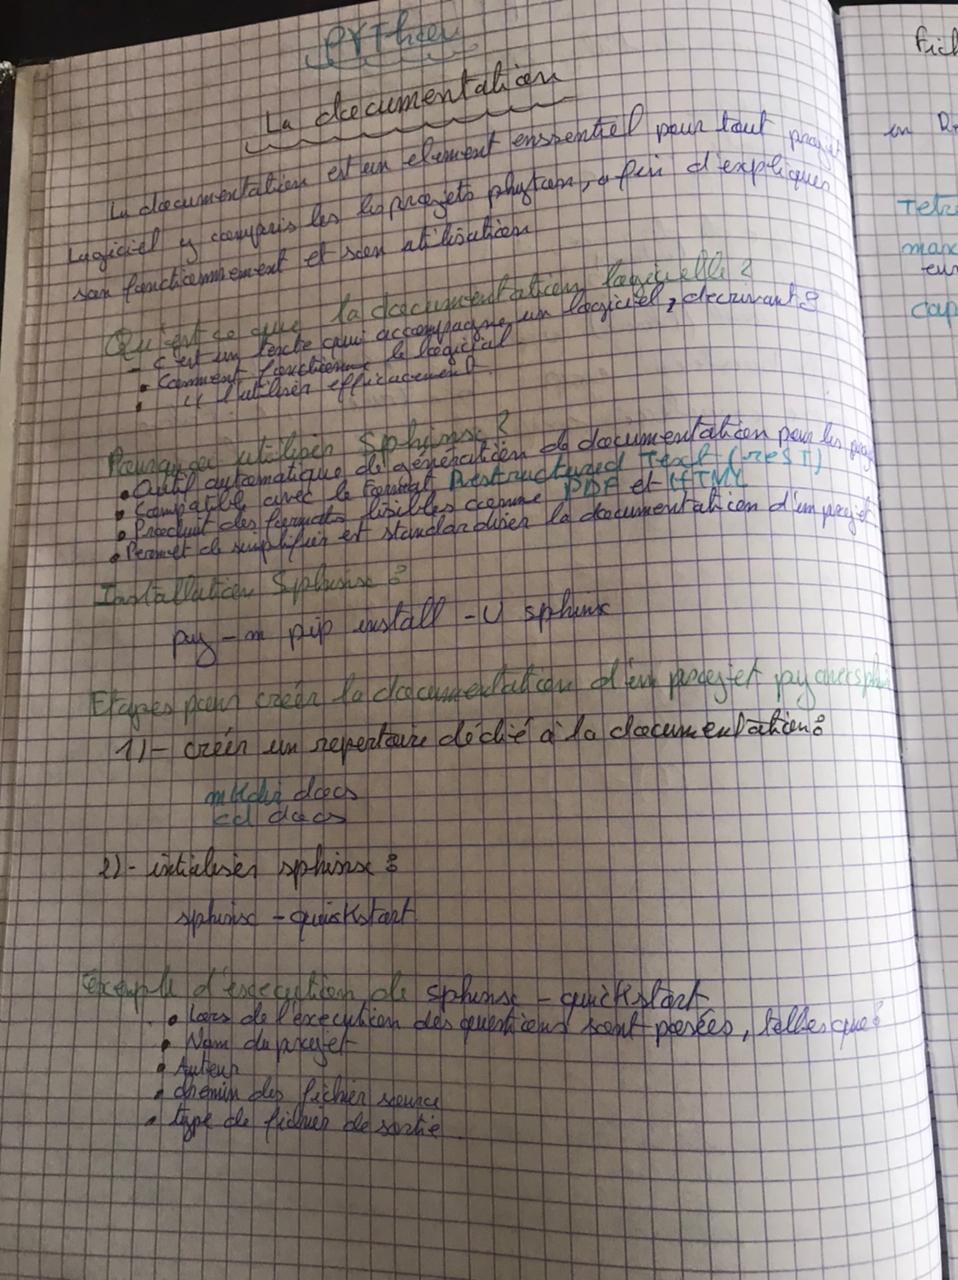 Python
La documentation
La documentation est un element enssentiel pour tout projet
Logiciel y compris les les projets phyton, a fin d'expliques
son fonctionnement et son utilisation
Qu'est ce que la documentation logicielle ?
- c'est un texte qui accompagne un logiciel, decrivant :
• Comment fonctionne le logicial
• " l'utiliser efficacement
Pourquoi utiliser Sphinx ?
• Outil automatique de géneration de documentation pour les proj
• Compatible avec le Format Restructured Text (resT)
• Produit des formats lisibles comme PDF et HTML
• Permet de simplifier et standardiser la documentation d'un projet
Installation Sphinx :
py -m pip install -U sphinx
Etapes pour créer la documentation d'un projet py avec sphin
1)- créer un repertoire dédié à la documentation :
mkdir docs
cd docs
2)- initialiser sphinx :
sphinx - quickstart
Exemple d'execution de sphinx - quickstart
• Lors de l'execution des questions sont posées, telles que :
• Nom du projet
• Auteur
• chemin des fichier source
• type de fichier de sortie
fich
en
Tetr
mane
eur
cap